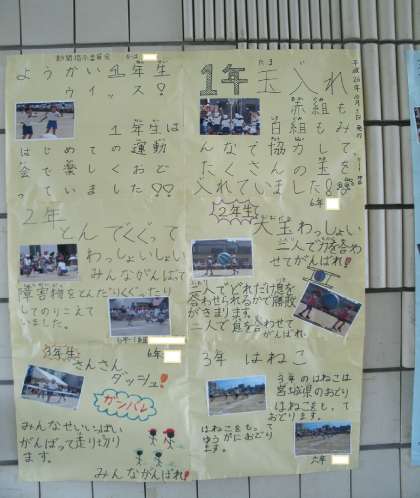 新聞掲示委員会
ようかい1年生
ウイッス!
1年生は
はじめての運動
会を楽しくおど
っていました!!
1年玉入れ
たま
赤組も
白組もみ
んなで協力して
たくさんの玉を
入れていました!
6年
2年
とんでくぐって
わっしょいしょい
みんながんばれ
障害物をとんだりくぐったり
してのりこえて
いました。
2年生
大玉わっしょい
二人で力を合わ
せてがんばれ!
二人でどれだけ息を
合わせられるかで勝敗
がきまります。
二人で息を合わせて
がんばれ
3年生
6年
さんさん、
ダッシュ!
ガンバレ
みんなせいいっぱい
がんばって走り切り
ます。
みんながんばれ!
3年 はねこ
3年のはねこは
宮城県のおどり
はねこをもって
おどります。
はねこをもって
ゆうがにおどり
ます。
六年